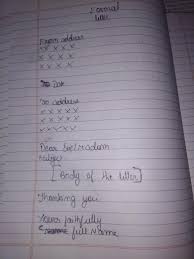 Formal
letter
From address
x x x x
x x x x
x x x x
Date
To address
x x x x x
x x x x x
x x x x x
Dear Sir/madam
[Body of the letter]
Thanking you
faithfully
full Name